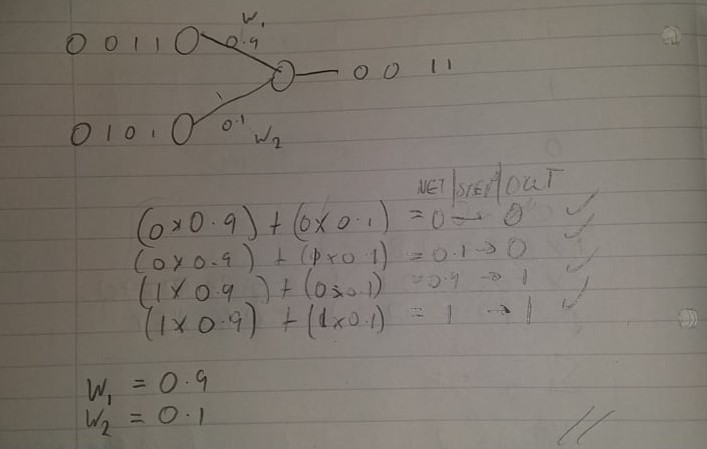 W₁
0 0 1 1 0.9
0 0 1 1
0 1 0 1 0.1 W₂
NET | STEP | OUT
(0 x 0.9) + (0 x 0.1) = 0 → 0 ✓
(0 x 0.9) + (1 x 0.1) = 0.1 → 0 ✓
(1 x 0.9) + (0 x 0.1) = 0.9 → 1 ✓
(1 x 0.9) + (1 x 0.1) = 1 → 1 ✓
W₁ = 0.9
W₂ = 0.1
//